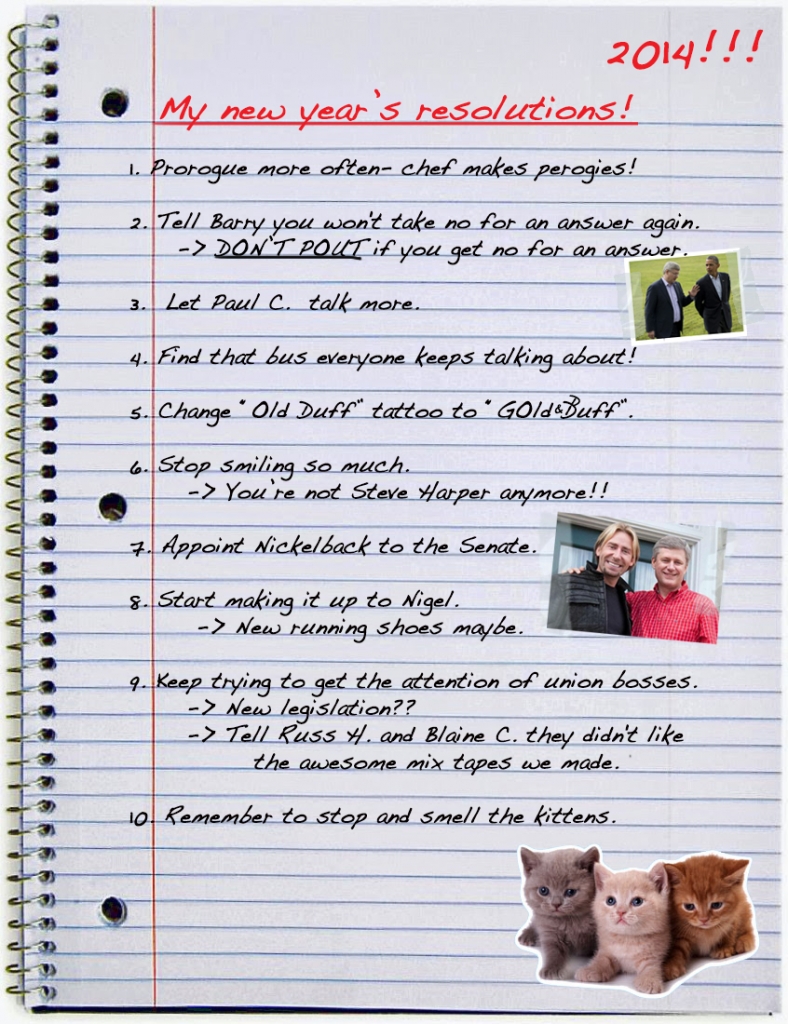 2014!!!
My new year's resolutions!
1. Prorogue more often- chef makes perogies!
2. Tell Barry you won't take no for an answer again.
-> DON'T POUT if you get no for an answer.
3. Let Paul C. talk more.
4. Find that bus everyone keeps talking about!
5. Change "Old Duff" tattoo to "GOld&Buff".
6. Stop smiling so much.
-> You're not Steve Harper anymore!!
7. Appoint Nickelback to the Senate.
8. Start making it up to Nigel.
-> New running shoes maybe.
9. Keep trying to get the attention of union bosses.
-> New legislation??
-> Tell Russ H. and Blaine C. they didn't like
the awesome mix tapes we made.
10. Remember to stop and smell the kittens.